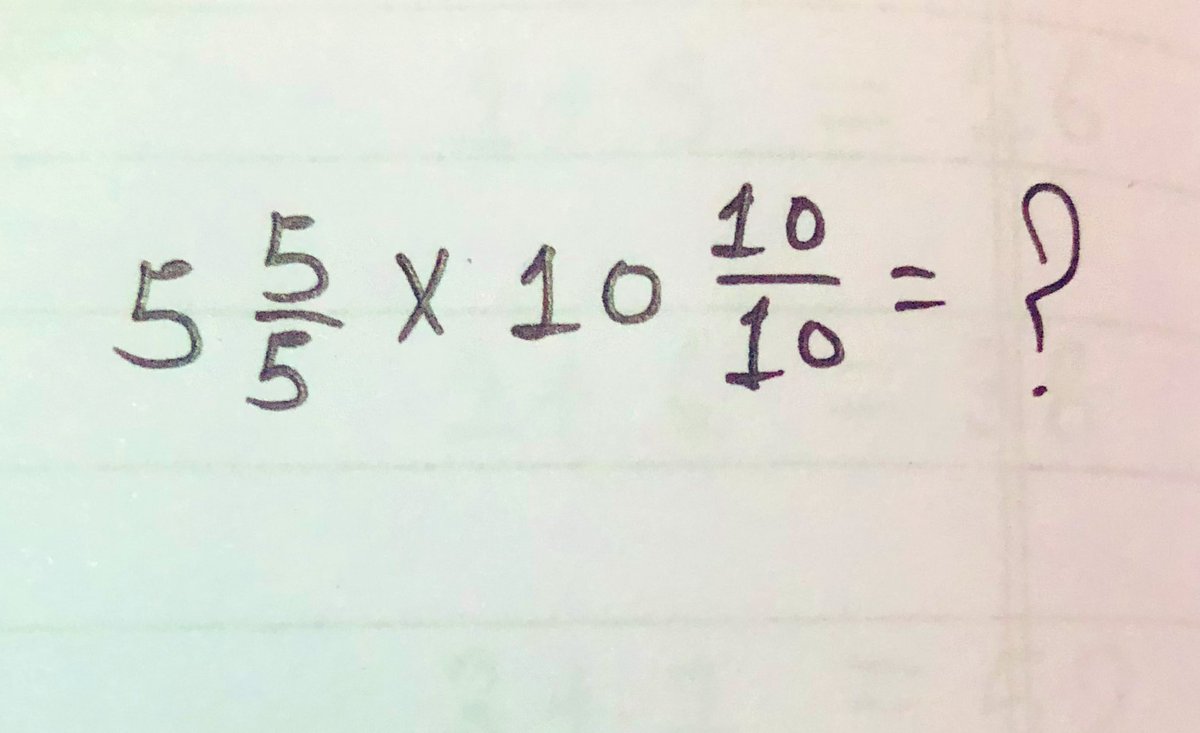 5 5/5 x 10 10/10 = ?